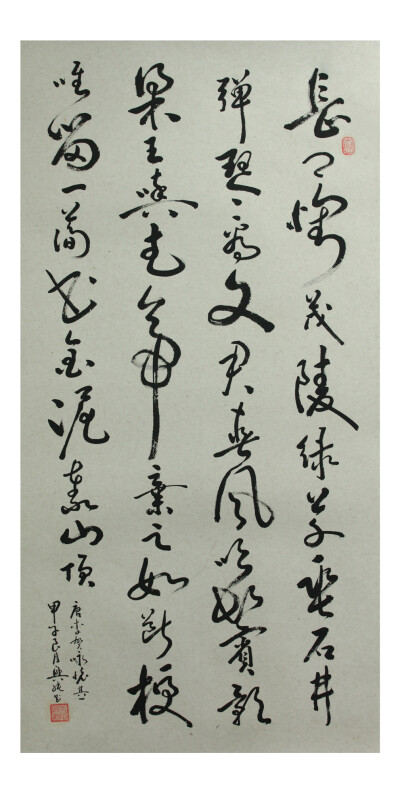 長卿懷茂陵緑草垂石井
彈琴看文君春風吹鬢影
梁王與武帝棄之如斷梗
唯留一簡書金泥泰山頂
唐李賀咏懷其一
甲子良月興書